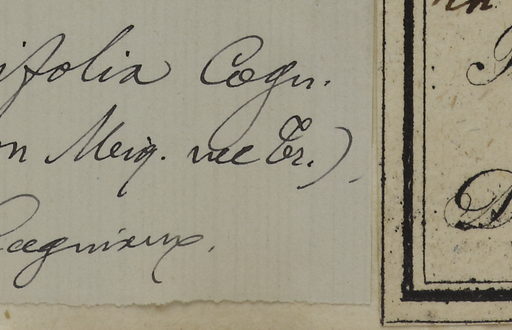 ifolia Cogn.
on Miq. nec Tr.).
Cogniaux.